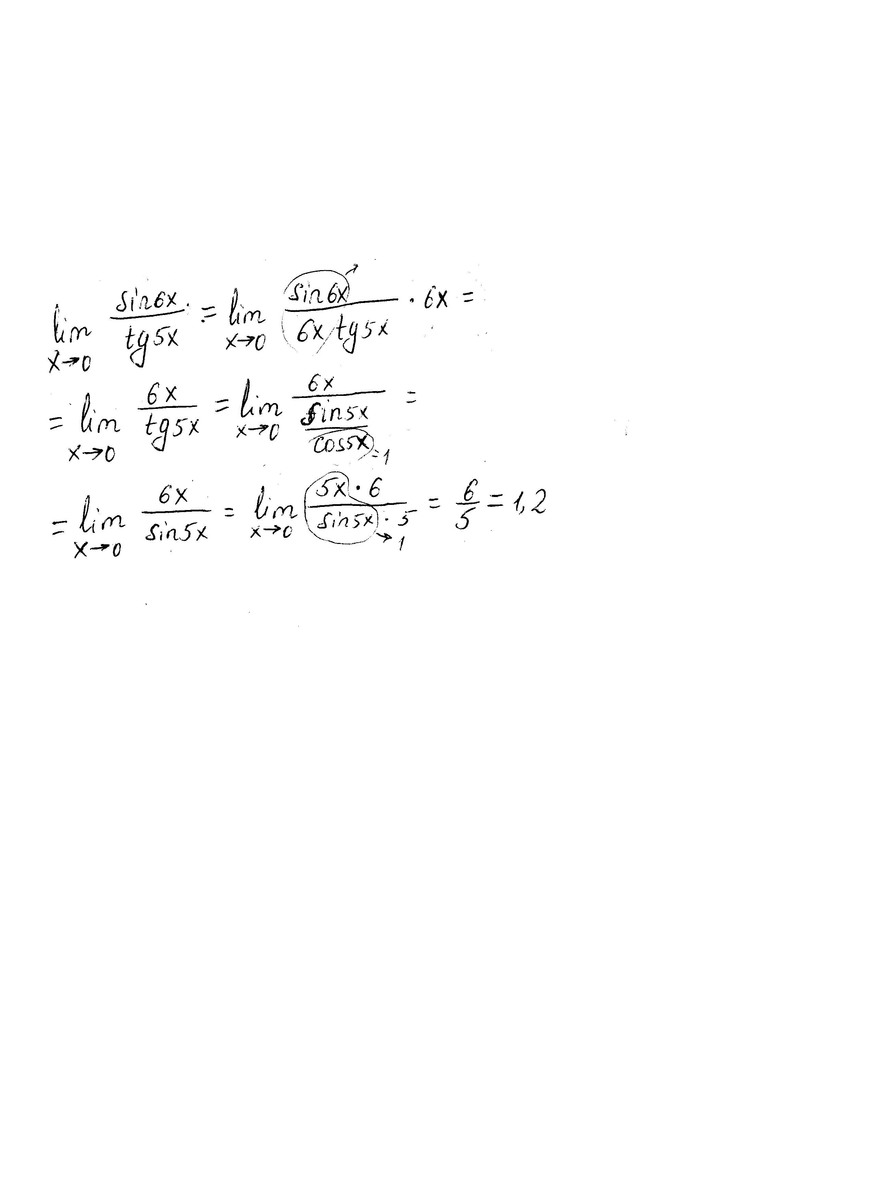 lim x→0 sin6x / tg5x = lim x→0 sin6x / 6x tg5x · 6x =
= lim x→0 6x / tg5x = lim x→0 6x / sin5x / cos5x =1 =
= lim x→0 6x / sin5x = lim x→0 5x · 6 / sin5x · 5 →1 = 6/5 = 1,2